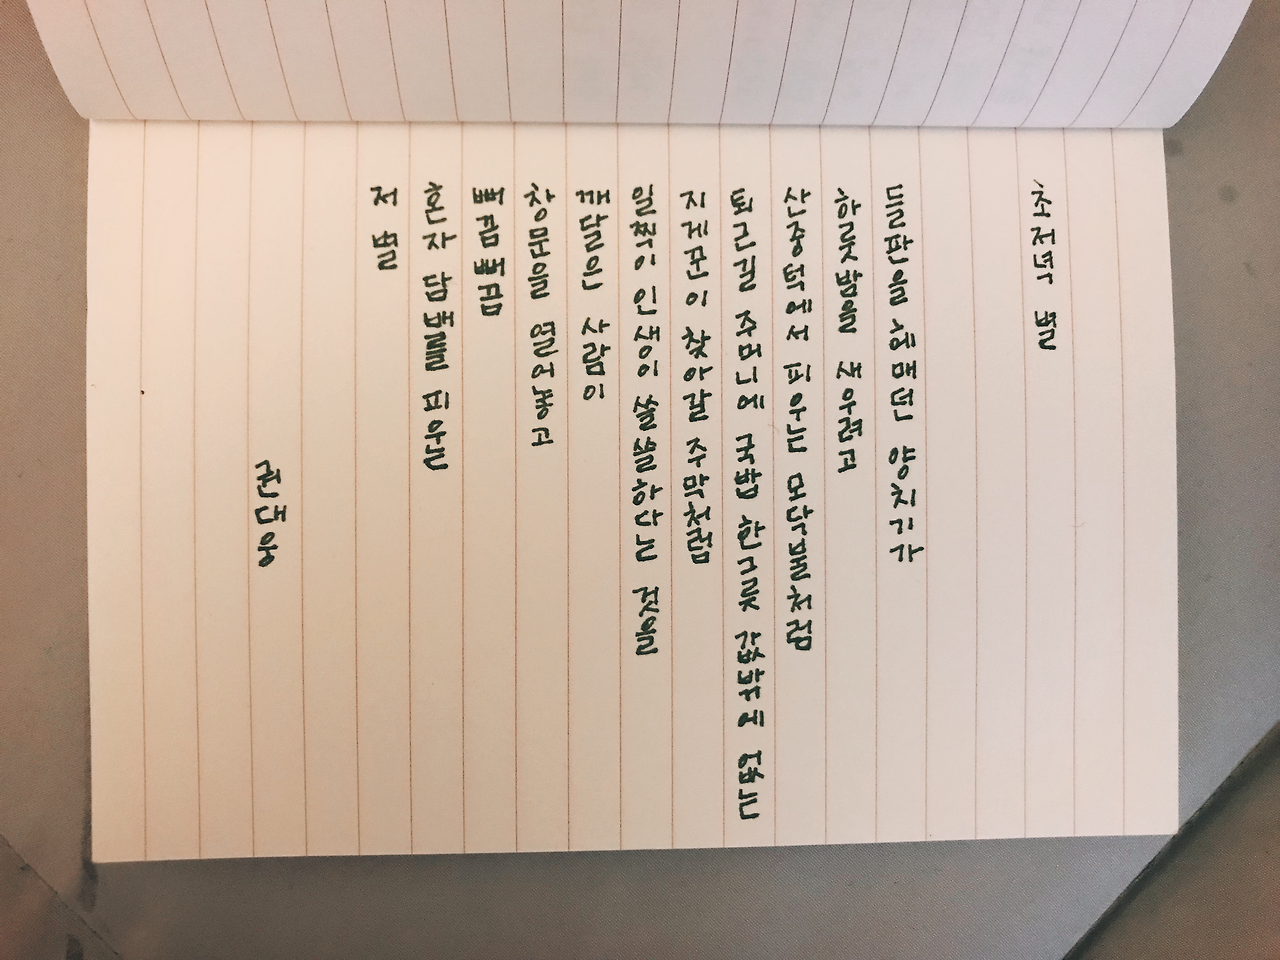 초저녁 별
들판을 헤매던 양치기가
하룻밤을 새우려고
산중턱에서 피우는 모닥불처럼
퇴근길 주머니에 국밥 한그릇 값밖에 없는
지게꾼이 찾아갈 주막처럼
일찍이 인생이 쓸쓸하다는 것을
깨달은 사람이
창문을 열어놓고
뻐끔뻐끔
혼자 담배를 피우는
저 별
권대웅